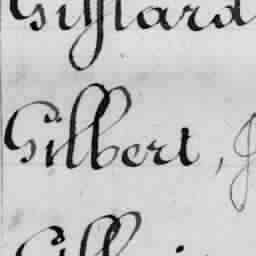 Giffard
Gilbert, J